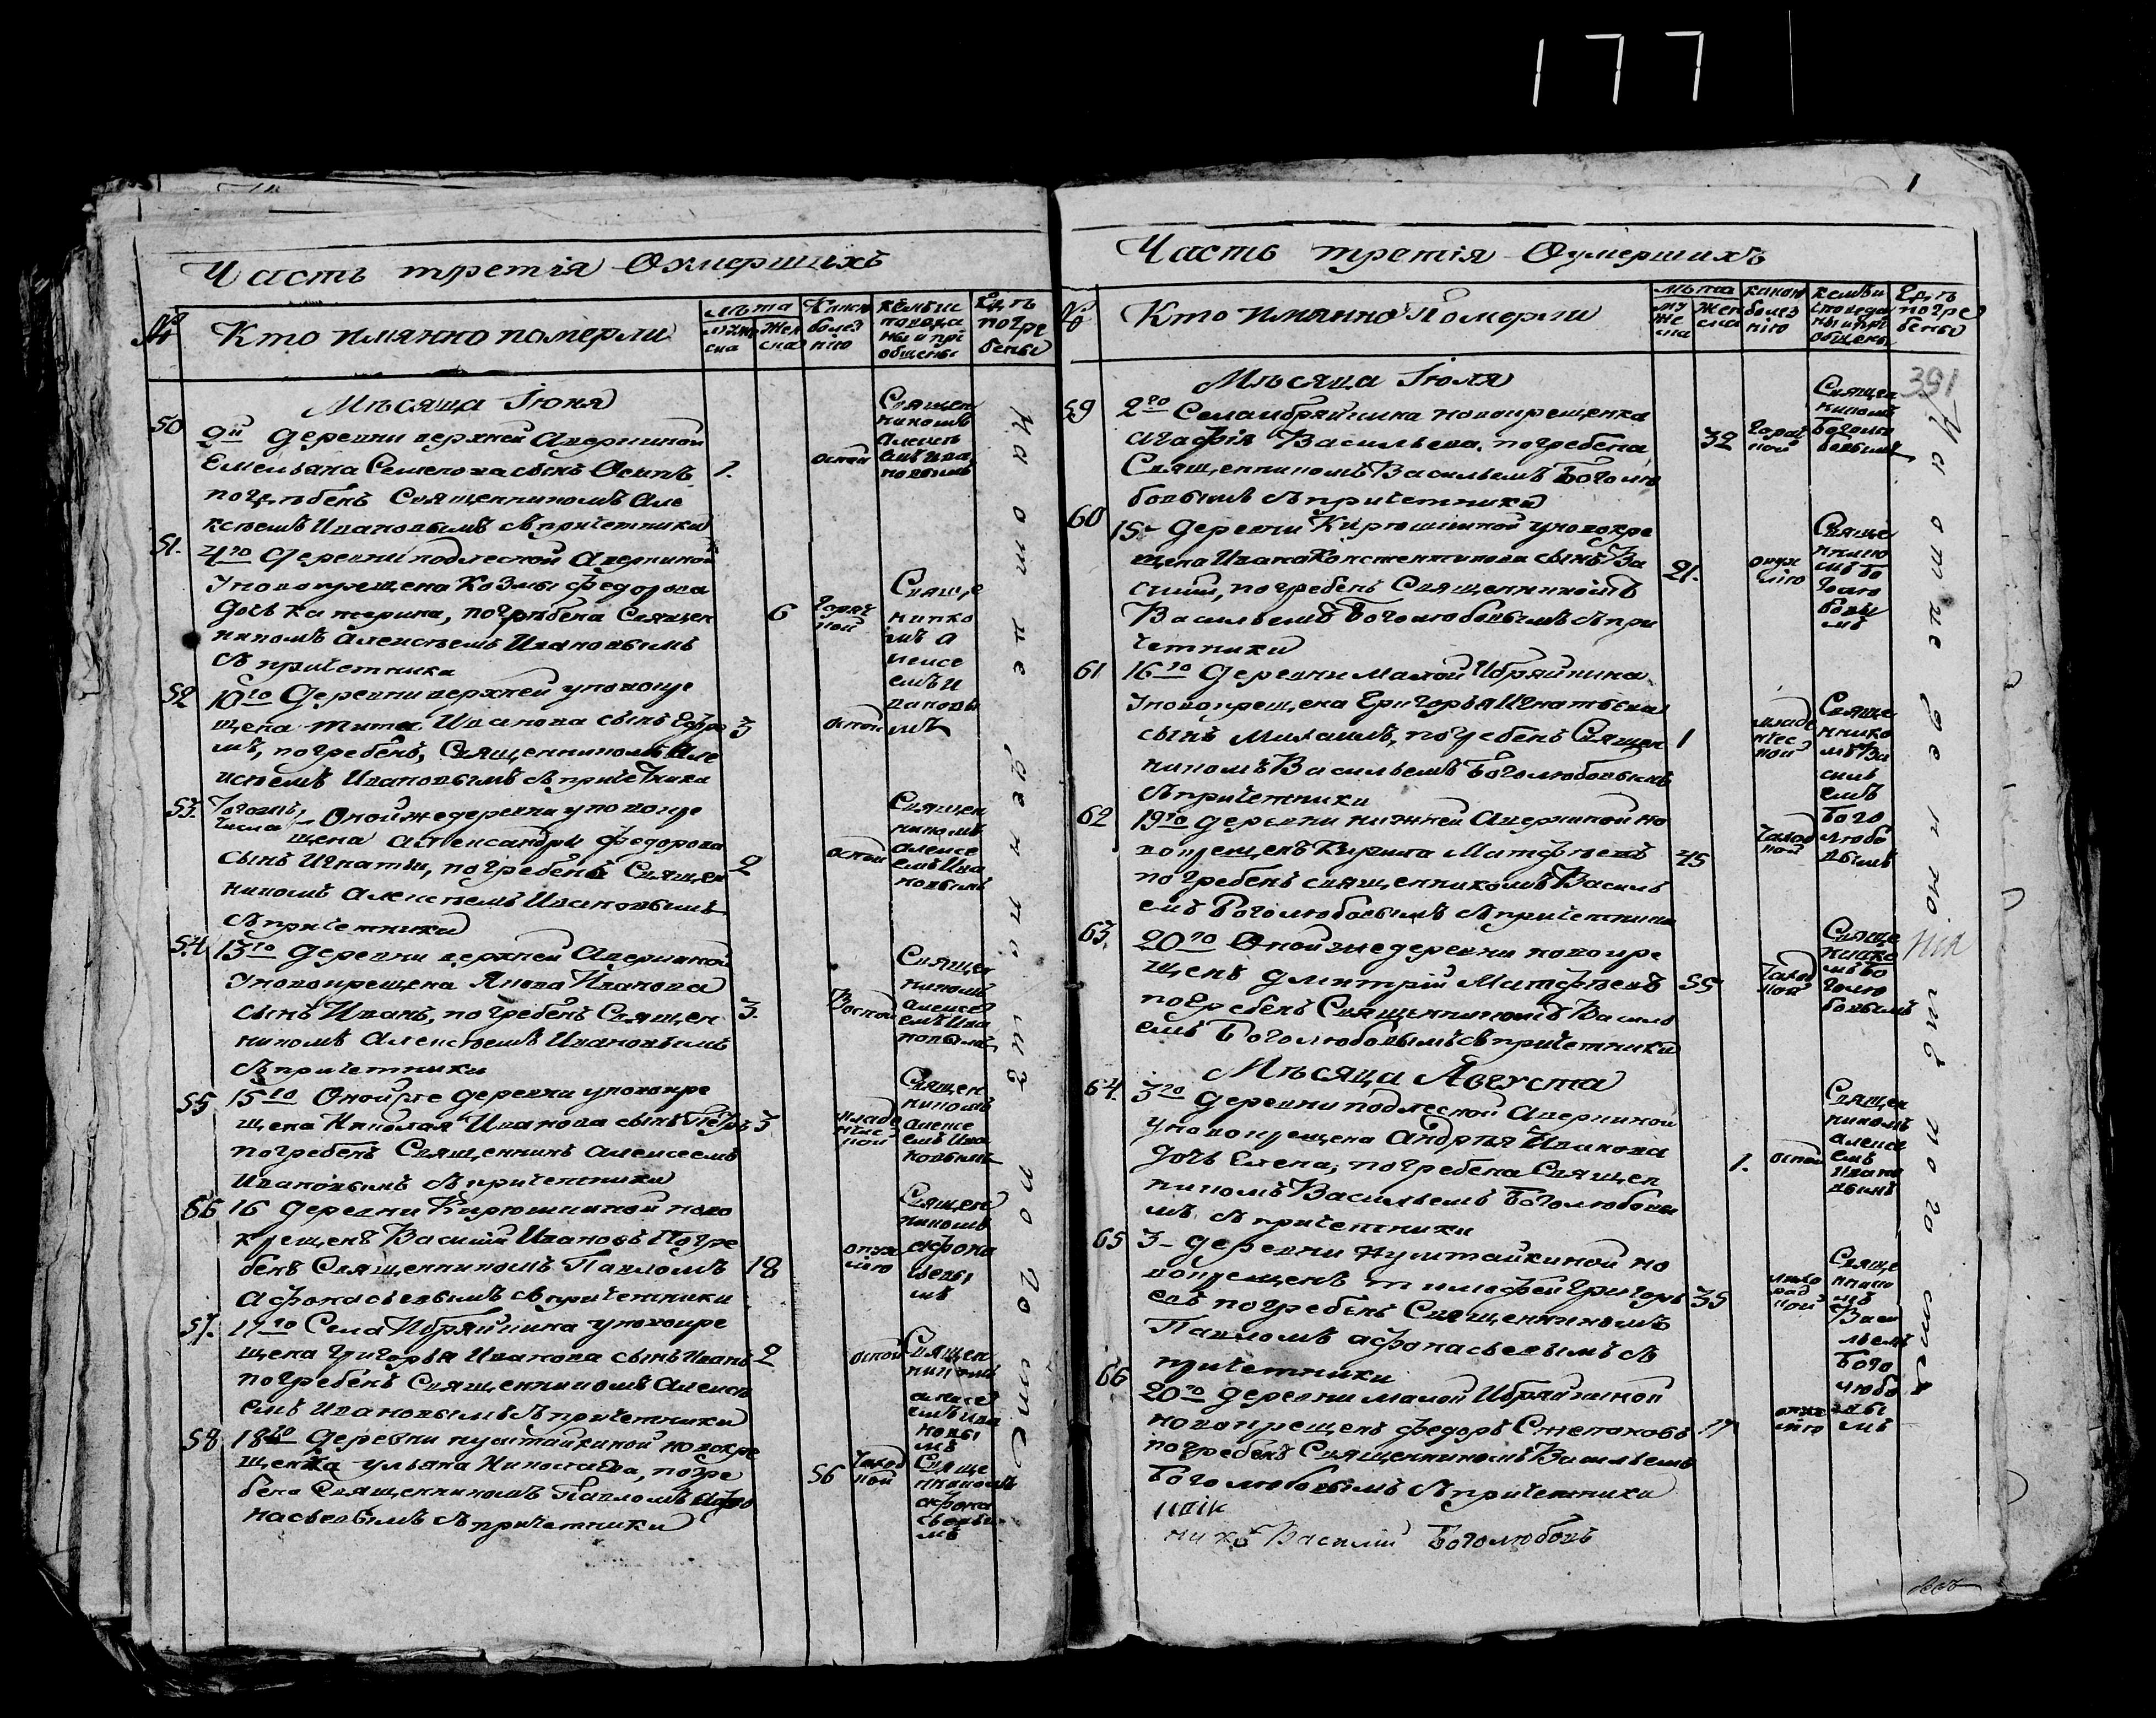 177
Часть третія Оумершихъ
№
Кто имянно померли
Лѣта
мужеска
Женска
Какою болезнію
кемъ исповеданы и приобщены
Гдѣ погребены
Мѣсяца Іюня
50
2й деревни верхней Аверкиной
Емельяна Семенова сынъ Осипъ
погребенъ Священникомъ Але
ксѣемъ Ивановымъ съ причетники
1.
оспой
Священ
никомъ
Алексѣ
емъ Ива
новымъ
51.
4го деревни подлесной Аверкиной
у новокрещена Козмы Федорова
дочь Катерина, погребена Священ
никомъ Алексѣемъ Ивановымъ
съ причетники
6
Горяч
кой
Свяще
ннико
мъ А
лексе
емъ И
вановы
мъ
52
10го Деревни верхней у новокре
щена Тита Иванова сынъ Ефре
мъ, погребенъ, Священникомъ Але
ксѣемъ Ивановымъ съ причетники
3
оспой
53.
Тогожъ
числа Оной же деревни у новокре
щена Александры Федорова
сынъ Игнатій, погребенъ Священ
никомъ Алексѣемъ Ивановымъ
съ причетники
2
оспой
Священ
никомъ
Алексе
емъ Ива
новымъ
54
13го Деревни верхней Аверкиной
у новокрещена Якова Иванова
сынъ Иванъ, погребенъ Священ
никомъ Алексѣемъ Ивановымъ
съ причетники
3.
Воспой
Священ
никомъ
Алексе
емъ Ива
новымъ
55
15го Оной же деревни у новокре
щена Николая Иванова сынъ Петръ
погребенъ Священникъ Алексеемъ
Ивановымъ съ причетники
3
младе
нчес
кой
Священ
никомъ
Алексе
емъ Ива
новымъ
56
16 деревни Кирюшкиной ново
крещенъ Василій Ивановъ Погре
бенъ Священникомъ Павломъ
Афонасьевымъ съ причетники
18
опух
лію
Священ
никомъ
Афона
сьевы
мъ
57.
17го Села Ибряйкина у новокре
щена Григорья Иванова сынъ Иванъ
погребенъ Священникомъ Алексѣ
емъ Ивановымъ съ причетники
2
оспой
Священ
никомъ
Алексе
емъ Ива
новы
мъ
58
18го деревни пуштайкиной новокре
щенка Ульяна Никол
бена Священникомъ Павломъ Афо
насьевымъ съ причетники
56
Чаход
кой
Свяще
нникомъ
Афона
сьевы
мъ
на отше
де
н
по
Часть третія Оумершихъ
№
Кто имянно Померли
Лѣта
му
же
ска
Жен
ска
какою
болез
нію
кемъ и
споведа
ны и при
общены
Гдѣ
погре
бены
391
Мѣсяца Іюля
59
2го Села Ибряйкина новокрещенка
Агафія Васильева, погребена
Священникомъ Васильемъ Боголю
бовымъ съ причетники
32
Горяч
кой
Священ
никомъ
Боголю
бовымъ
60
15 Деревни Кирюшкиной у новокре
щена Ивана Констентинова сынъ Ва
силій, погребенъ Священникомъ
Васильемъ Боголюбовымъ съ при
четники
21.
опух
лію
Свяще
ннико
мъ Бо
голю
бовы
мъ
61
16го Деревни Малой Ибряйкина
у новокрещена Григорья Игнатьева
сынъ Михаилъ, погребенъ Священ
никомъ Васильемъ Боголюбовымъ
съ причетники
1
младе
нчес
кой
Свяще
ннико
мъ Ва
силь
емъ
Бого
любо
вымъ
62
19го деревни нижней Аверкиной но
вокрещенъ Кирила Матфѣевъ
погребенъ священникомъ Василь
емъ Боголюбовымъ съ причетники
45
Чаход
кой
63.
20го Оной же деревни новокре
щенъ Дмитрій Матфѣевъ
погребенъ Священникомъ Василь
емъ Боголюбовымъ съ причетники
55
Чаход
кой
Свяще
ннико
мъ Бо
голю
бовымъ
Мѣсяца Августа
64.
3го Деревни подлесной Аверкиной
у новокрещена Андрѣя Иванова
дочь Елена, погребена Священ
никомъ Васильемъ Боголюбовы
мъ съ причетники
1.
оспой
Священ
никомъ
Алексе
емъ
Ивано
вымъ
65
3 деревни пуштайкиной но
вокрещенъ Тимофей Григорь
евъ погребенъ Священникомъ
Павломъ Афонасьевымъ съ
причетники
35
лихо
рад
кой
Свяще
ннико
мъ
Васи
льемъ
Бого
любо
вы
мъ
66
20го деревни малой Ибряйкиной
новокрещенъ Федоръ Степановъ
погребенъ Священникомъ Васильемъ
Боголюбовымъ съ причетники
опух
лію
никъ Василій Боголюбовъ